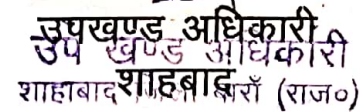 उपखण्ड अधिकारी
उप खण्ड अधिकारी
शाहबाद
शाहाबाद बाराँ (राज०)